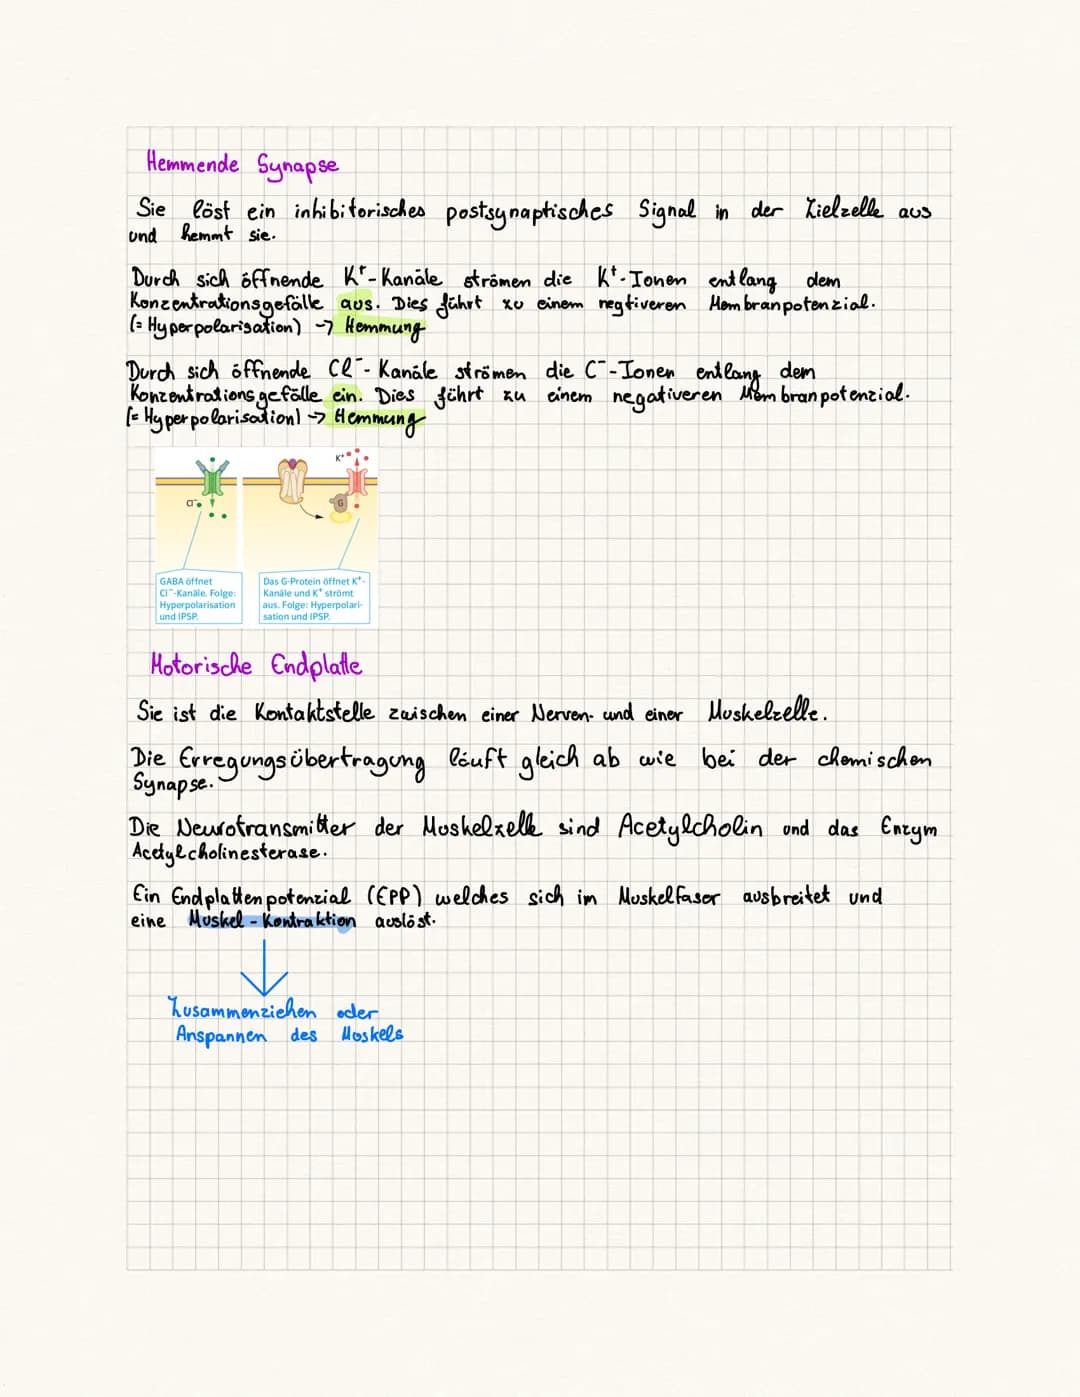 Hemmende Synapse
Sie löst ein inhibitorisches postsynaptisches Signal in der Zielzelle aus
und hemmt sie.
Durch sich öffnende K⁺-Kanäle strömen die K⁺-Ionen entlang dem
Konzentrationsgefälle aus. Dies führt zu einem negtiveren Membranpotenzial.
(= Hyperpolarisation) → Hemmung
Durch sich öffnende Cl⁻-Kanäle strömen die C⁻-Ionen entlang dem
Konzentrationsgefälle ein. Dies führt zu einem negativeren Membranpotenzial.
(= Hyperpolarisation) → Hemmung
K⁺
Cl⁻
G
GABA öffnet
Cl⁻-Kanäle. Folge:
Hyperpolarisation
und IPSP.
Das G-Protein öffnet K⁺-
Kanäle und K⁺ strömt
aus. Folge: Hyperpolari-
sation und IPSP.
Motorische Endplatte
Sie ist die Kontaktstelle zwischen einer Nerven- und einer Muskelzelle.
Die Erregungsübertragung läuft gleich ab wie bei der chemischen
Synapse.
Die Neurotransmitter der Muskelzelle sind Acetylcholin und das Enzym
Acetylcholinesterase.
Ein Endplattenpotenzial (EPP) welches sich im Muskelfaser ausbreitet und
eine Muskel-Kontraktion auslöst.
Zusammenziehen oder
Anspannen des Muskels